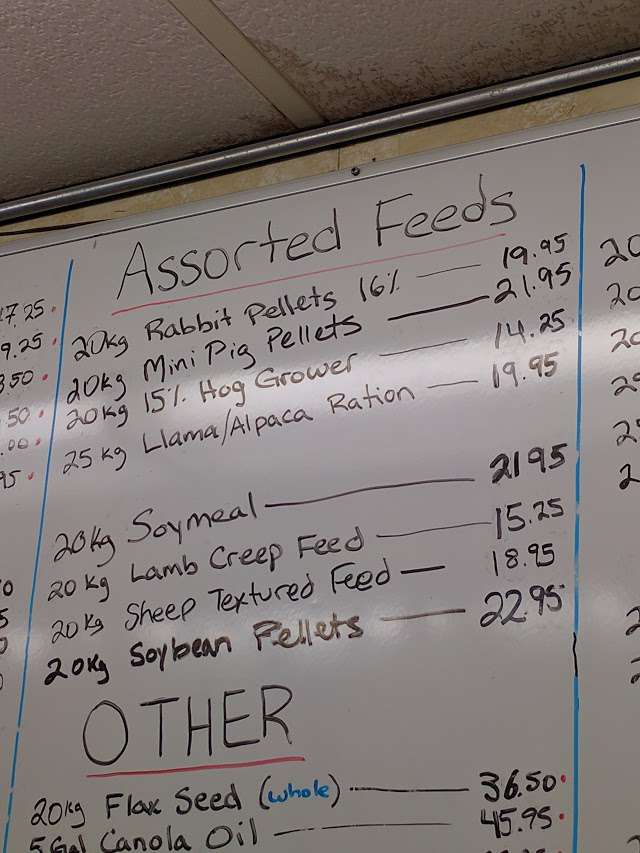 Assorted Feeds
20kg Rabbit Pellets 16% — 19.95
20kg Mini Pig Pellets — 21.95
20kg 15% Hog Grower — 14.25
25 kg Llama/Alpaca Ration — 19.95
20kg Soymeal — 21 95
20 kg Lamb Creep Feed — 15.25
20 kg Sheep Textured Feed — 18.95
20kg Soybean Pellets — 22.95
OTHER
20kg Flax Seed (whole) — 36.50
5 Gal Canola Oil — 45.95